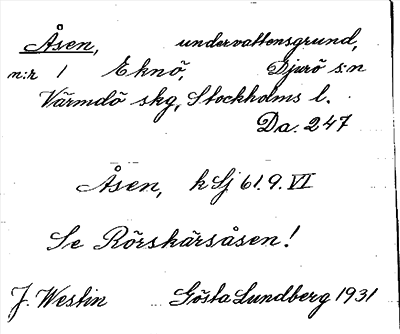 Åsen, undervattensgrund,
n:r 1 Eknö, Djurö s:n
Värmdö skg, Stockholms l.
Da. 247
Åsen, h Sj 61.9. VI
Se Rörskärsåsen!
J. Westin Gösta Lundberg 1931